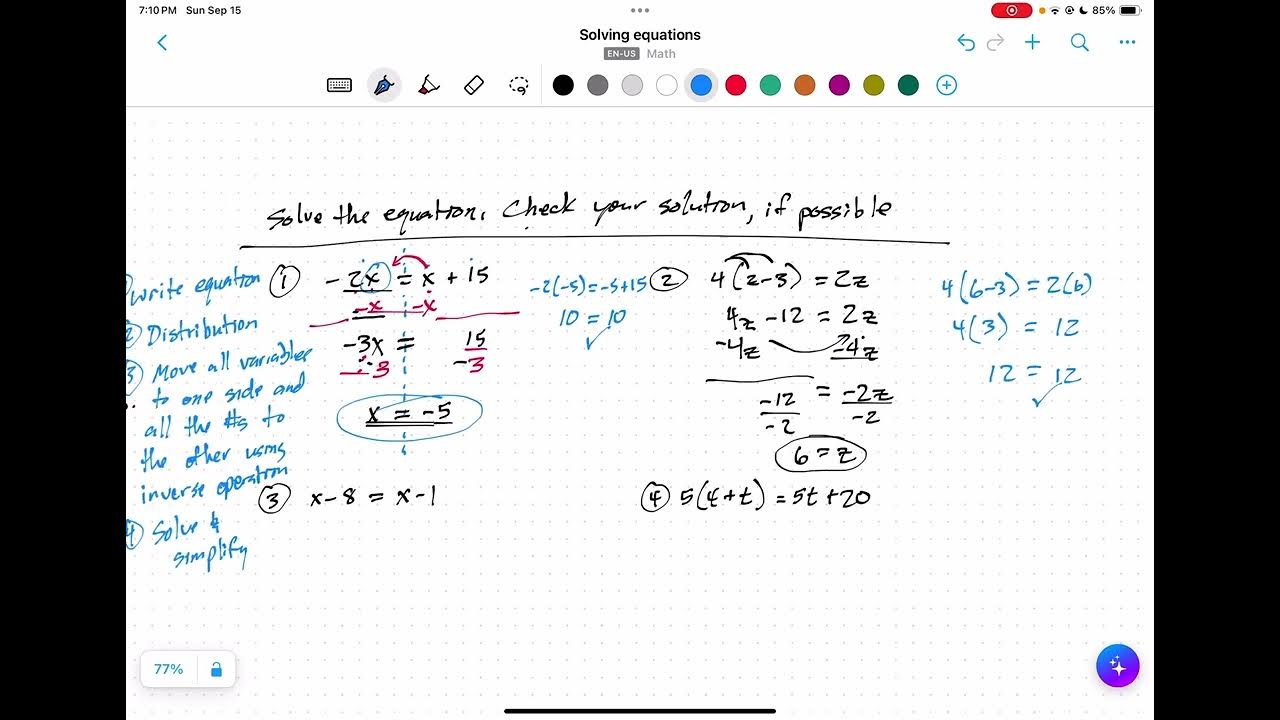 7:10 PM Sun Sep 15
85%
Solving equations
EN-US Math
Solve the equation. Check your solution, if possible
Write equation
2 Distribution
3 Move all variables
to one side and
all the #s to
the other using
inverse operation
4 Solve &
simplify
① -2x = x + 15
-x -x
-3x = 15
÷-3 -3
x = -5
-2(-5) = -5+15
10 = 10
✓
② 4(z-3) = 2z
4z - 12 = 2z
-4z -4z
-12 = -2z
-2 -2
6 = z
4(6-3) = 2(6)
4(3) = 12
12 = 12
✓
③ x - 8 = x - 1
④ 5(4+t) = 5t + 20
77%